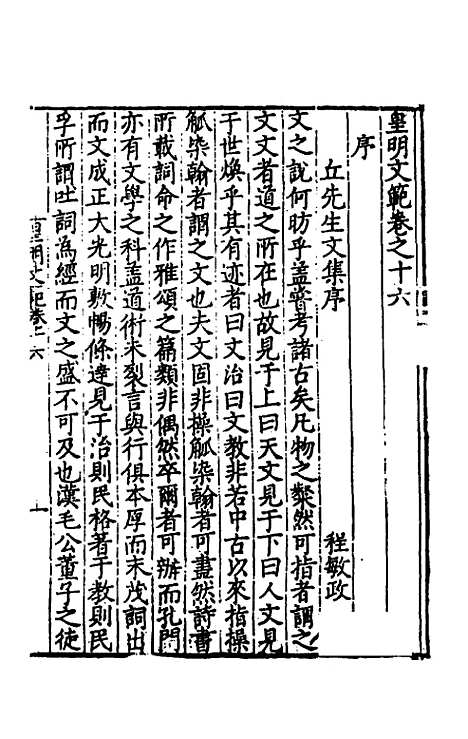 皇明文範卷之十六
序
丘先生文集序
程敏政
文之說何昉乎蓋嘗考諸古矣凡物之粲然可指者謂之
文文者道之所在也故見于上曰天文見于下曰人文見
于世煥乎其有迹者曰文治曰文教非若中古以來指操
觚染翰者謂之文也夫文固非操觚染翰者可盡然詩書
所載詞命之作雅頌之篇類非偶然卒爾者可辦而孔門
亦有文學之科蓋道術未裂言與行俱本厚而末茂詞出
而文成正大光明敷暢條達見于治則民格著于教則民
孚所謂吐詞為經而文之盛不可及也漢毛公董子之徒
皇明文範卷十六
一